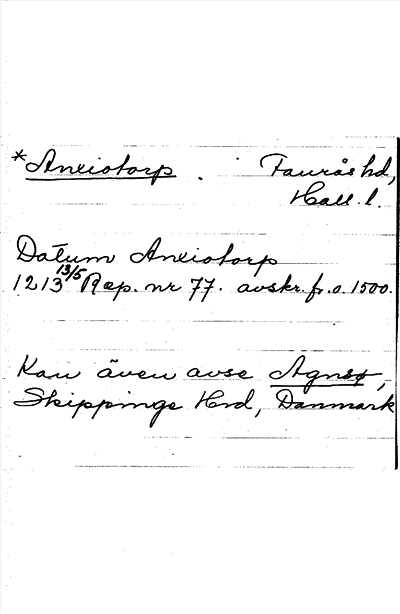 *Aneiotorp. Fauråshd,
Hall. l.
Datum Aneiotorp
1213 13/5 Rep. nr 77. avskr. fr. o. 1500.
Kan även avse Agnsø,
Skippinge Hrd, Danmark